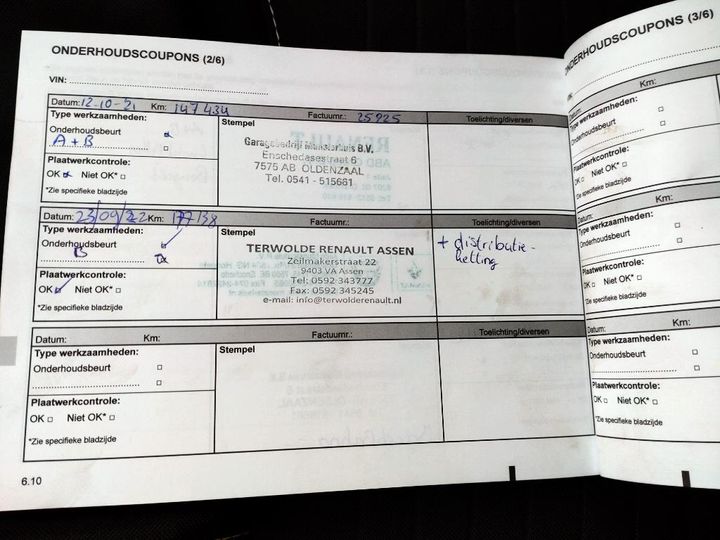 ONDERHOUDSCOUPONS (2/6)
VIN:
Datum: 12-10-21 Km: 147434 Factuurnr.: 25925 Toelichting/diversen
Type werkzaamheden:
Onderhoudsbeurt
A + B
Plaatwerkcontrole:
OK Niet OK*
*Zie specifieke bladzijde
Stempel
Garagebedrijf Munsterhuis B.V.
Enschedesestraat 6
7575 AB OLDENZAAL
Tel. 0541 - 515661
Datum: 23/09/22 Km: 177138 Factuurnr.: Toelichting/diversen
Type werkzaamheden:
Onderhoudsbeurt
B
Plaatwerkcontrole:
OK Niet OK*
*Zie specifieke bladzijde
Stempel
TERWOLDE RENAULT ASSEN
Zeilmakerstraat 22
9403 VA Assen
Tel: 0592 343777
Fax: 0592 345245
e-mail: info@terwolderenault.nl
+ distributie-
ketting
Datum: Km: Factuurnr.: Toelichting/diversen
Type werkzaamheden:
Onderhoudsbeurt
Plaatwerkcontrole:
OK Niet OK*
*Zie specifieke bladzijde
Stempel
6.10
ONDERHOUDSCOUPONS (3/6)
Datum: Km:
Type werkzaamheden:
Onderhoudsbeurt
Plaatwerkcontrole:
OK Niet OK*
*Zie specifieke bladzijde
Datum: Km:
Type werkzaamheden:
Onderhoudsbeurt
Plaatwerkcontrole:
OK Niet OK*
*Zie specifieke bladzijde
Datum: Km:
Type werkzaamheden:
Onderhoudsbeurt
Plaatwerkcontrole:
OK Niet OK*
*Zie specifieke bladzijde